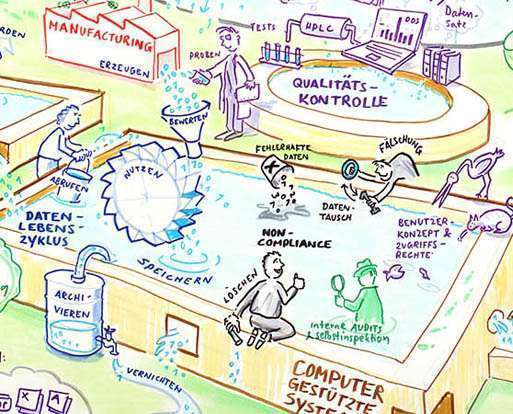 RDEN
MANUFACTURING
ERZEUGEN
PROBEN
TESTS
HPLC
DDS
Daten-
Satz
QUALITÄTS-
KONTROLLE
BEWERTEN
NUTZEN
ABRUFEN
DATEN-
LEBENS-
ZYKLUS
SPEICHERN
FEHLERHAFTE
DATEN
X
FÄLSCHUNG
DATEN-
TAUSCH
NON-
COMPLIANCE
BENUTZER-
KONZEPT &
ZUGRIFFS-
RECHTE
LÖSCHEN
interne AUDITS
& selbstinspektion
ARCHI-
VIEREN
VERNICHTEN
X A
COMPUTER
GESTÜTZTE
SYSTE